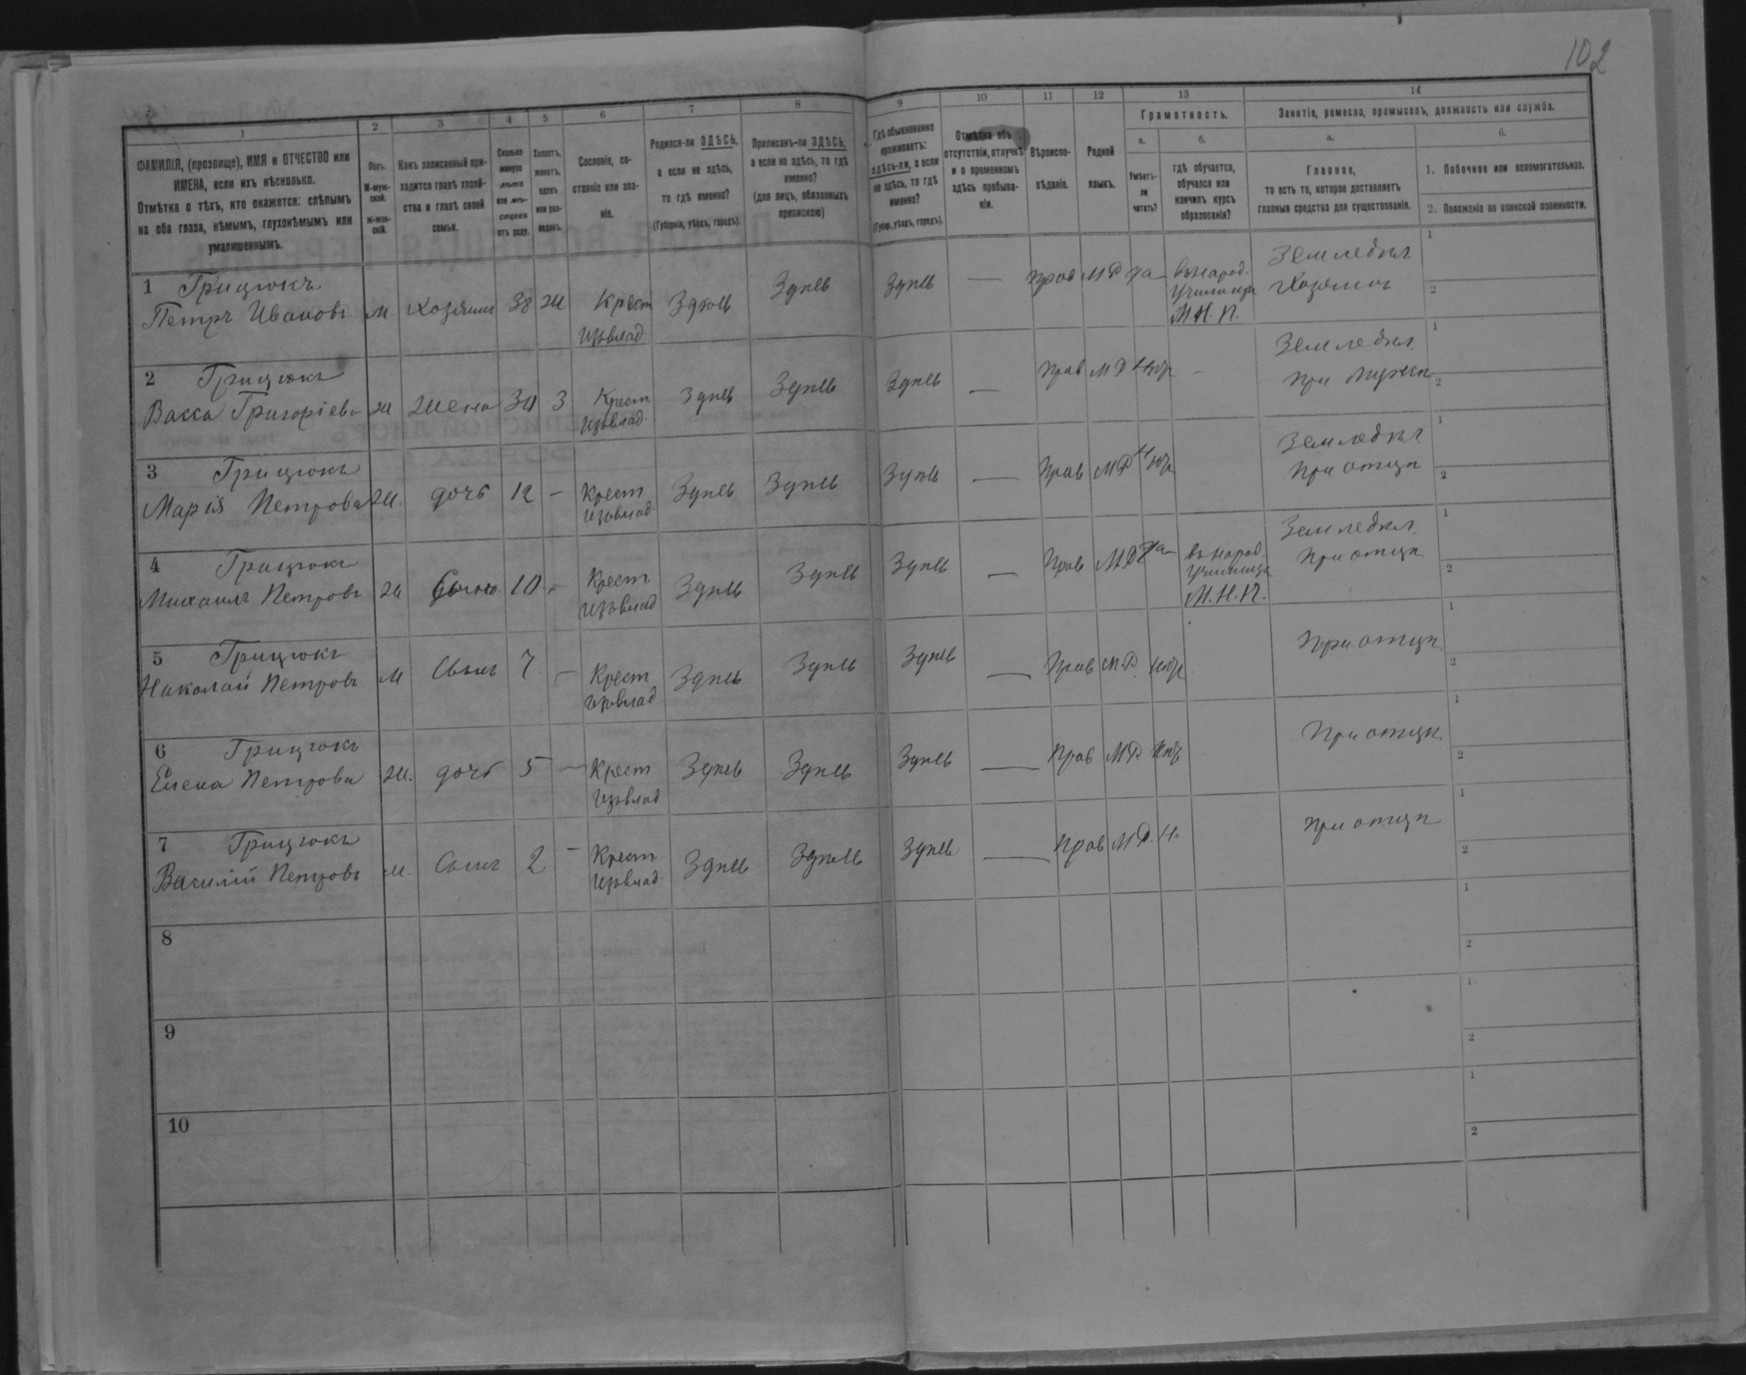 102
1
2
3
4
5
6
7
8
9
10
11
12
13
14
ФАМИЛІЯ, (прозвище), ИМЯ и ОТЧЕСТВО или
ИМЕНА, если ихъ нѣсколько.
Отмѣтка о тѣхъ, кто окажется: слѣпымъ
на оба глаза, нѣмымъ, глухонѣмымъ или
умалишеннымъ.
Полъ.
М-муж-
ской.
Ж-жен-
скій.
Какъ записанный при-
ходится главѣ хозяй-
ства и главѣ своей
семьи.
Сколько
минуло
лѣтъ
или мѣ-
сяцевъ
отъ роду.
Холостъ,
женатъ,
вдовъ
или раз-
веденъ.
Сословіе, со-
стояніе или зва-
ніе.
Родился-ли ЗДѢСЬ,
а если не здѣсь,
то гдѣ именно?
(Губернія, уѣздъ, городъ).
Приписанъ-ли ЗДѢСЬ,
а если не здѣсь, то гдѣ
именно?
(для лицъ, обязанныхъ
припискою)
Гдѣ обыкновенно
проживаетъ:
здѣсь-ли, а если
не здѣсь, то гдѣ
именно?
(Губерн., уѣздъ, городъ).
Отмѣтка объ
отсутствіи, отлучкѣ
и о временномъ
здѣсь пребыва-
ніи.
Вѣроиспо-
вѣданіе.
Родной
языкъ.
Грамотность.
а.
Умѣетъ-
ли
читать?
б.
гдѣ обучается,
обучался или
кончилъ курсъ
образованія?
Занятіе, ремесло, промыселъ, должность или служба.
а.
Главное,
то есть то, которое доставляетъ
главныя средства для существованія.
б.
1. Побочное или вспомогательное.
2. Положеніе по воинской повинности.
1 Грицюкъ
Петръ Ивановъ м. хозяинъ 38 ж Крест
изъ влад Здѣсь Здѣсь Здѣсь — Прав М Р да въ народ.
училищѣ
М.Н.П. Земледѣл
Хозяинъ 1
2
2 Грицюкъ
Васса Григоріева ж жена 34 З Крест
изъ влад. Здѣсь Здѣсь Здѣсь — Прав М Р нѣт — Земледѣл
при мужѣ 1
2
3 Грицюкъ
Марія Петрова ж. дочь 12 — Крест
изъ влад. Здѣсь Здѣсь Здѣсь — Прав М Р нѣт Земледѣл
При отцѣ 1
2
4 Грицюкъ
Михаилъ Петровъ м Сынъ 10 - Крест
изъ влад Здѣсь Здѣсь Здѣсь — Прав М.Р. да въ народ.
училищѣ
М.Н.П. Земледѣл.
При отцѣ 1
2
5 Грицюкъ
Николай Петровъ м Сынъ 7 — Крест
изъ влад Здѣсь Здѣсь Здѣсь — Прав М.Р. нѣт При отцѣ 1
2
6 Грицюкъ
Елена Петрова ж. дочь 5 — Крест
изъ влад Здѣсь Здѣсь Здѣсь — Прав М Р нѣт При отцѣ 1
2
7 Грицюкъ
Василій Петровъ м. Сынъ 2 — Крест
изъ влад. Здѣсь Здѣсь Здѣсь — Прав М Р. Н. При отцѣ 1
2
8 1
2
9 1
2
10 1
2